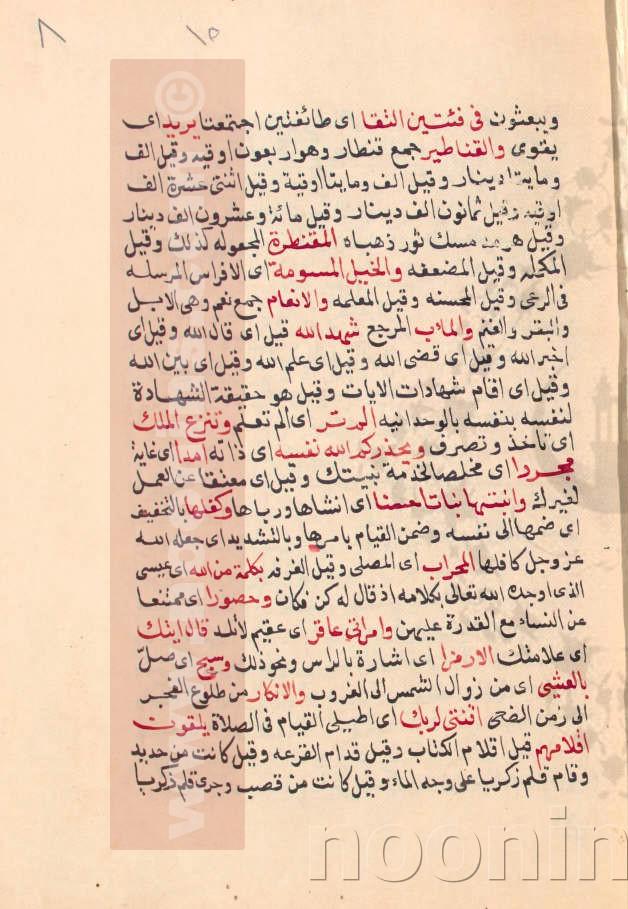 ٨ ١٥
ويبعثون في فئتين التقتا اى طائفتين اجتمعتا يريد اى
يقوى والقناطير جمع قنطار وهو اربعون اوقيه وقيل الف
ومايتا دينار وقيل الف ومايتا اوقية وقيل اثنتى عشرة الف
اوقيه وقيل ثمانون الف دينار وقيل مائة وعشرون الف دينار
وقيل هو مسك ثور ذهباه المقنطرة المجعوله كذلك وقيل
المكمله وقيل المضعفه والخيل المسومة اى الافراس المرسله
فى الرعى وقيل المحسنه وقيل المعلمه والانعام جمع نعم وهى الابل
والبقر والغنم والماب المرجع شهد الله قيل اى قال الله وقيل اى
اخبر الله وقيل اى قضى الله وقيل اى علم الله وقيل اى بين الله
وقيل اى اقام شهادات الايات وقيل هو حقيقة الشهادة
لنفسه بنفسه بالوحدانيه الم تر اى الم تعلم وتنزع الملك
اى تاخذ وتصرف ويحذركم الله نفسه اى ذاته امدا اى غاية
محررا اى مخلصا لخدمة بيتك وقيل اى معتقا عن العمل
لغيرك وانبتها نباتا حسنا اى انشاها ورباها وكفلها بالتخفيف
اى ضمها الى نفسه وضمن القيام بامرها وبالتشديد اى جعله الله
عز وجل كافلها المحراب اى المصلى وقيل الغرفه بكلمة من الله اى عيسى
الذى اوحده الله تعالى بكلامه اذ قال له كن فكان وحصورا اى ممتنعا
عن النساء مع القدرة عليهن وامراتى عاقر اى عقيم لا تلد قال ايتك
اى علامتك الا رمزا اى اشارة بالراس ونحو ذلك وسبح اى صل
بالعشى اى من زوال الشمس الى الغروب والابكار من طلوع الفجر
الى زمن الضحى اقنتى لربك اى اطيلى القيام فى الصلاة يلقون
اقلامهم قيل اقلام الكتاب وقيل قدام القرعه وقيل كانت من حديد
وقام قلم زكريا على وجه الماء وقيل كانت من قصب وجرى قلم زكريا
noonin